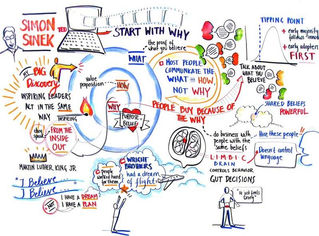 SIMON
SINEK
TED
START WITH WHY
the proof of
what you believe
WHAT
HOW
WHY
PURPOSE
BELIEF
value
proposition
MY BIG
Discovery
INSPIRING LEADERS
ACT IN THE SAME
WAY
THINKING
they speak
FROM THE
INSIDE
OUT
MARTIN LUTHER KING, JR.
I Believe
I Believe
I HAVE A DREAM
I HAVE A PLAN
MOST PEOPLE
COMMUNICATE THE
WHAT or HOW
NOT WHY
PEOPLE BUY BECAUSE OF
THE WHY
WRIGHT
BROTHERS
had a dream
of flight
people worked hard
for them
TIPPING POINT
early majority
early adopters
FIRST
TALK ABOUT
WHAT YOU
BELIEVE
SHARED BELIEFS
POWERFUL
do business with
people with the
same beliefs
Hire these people
LIMBIC
BRAIN
CONTROLS BEHAVIOR
Doesn't control
language
GUT DECISIONS
It just feels